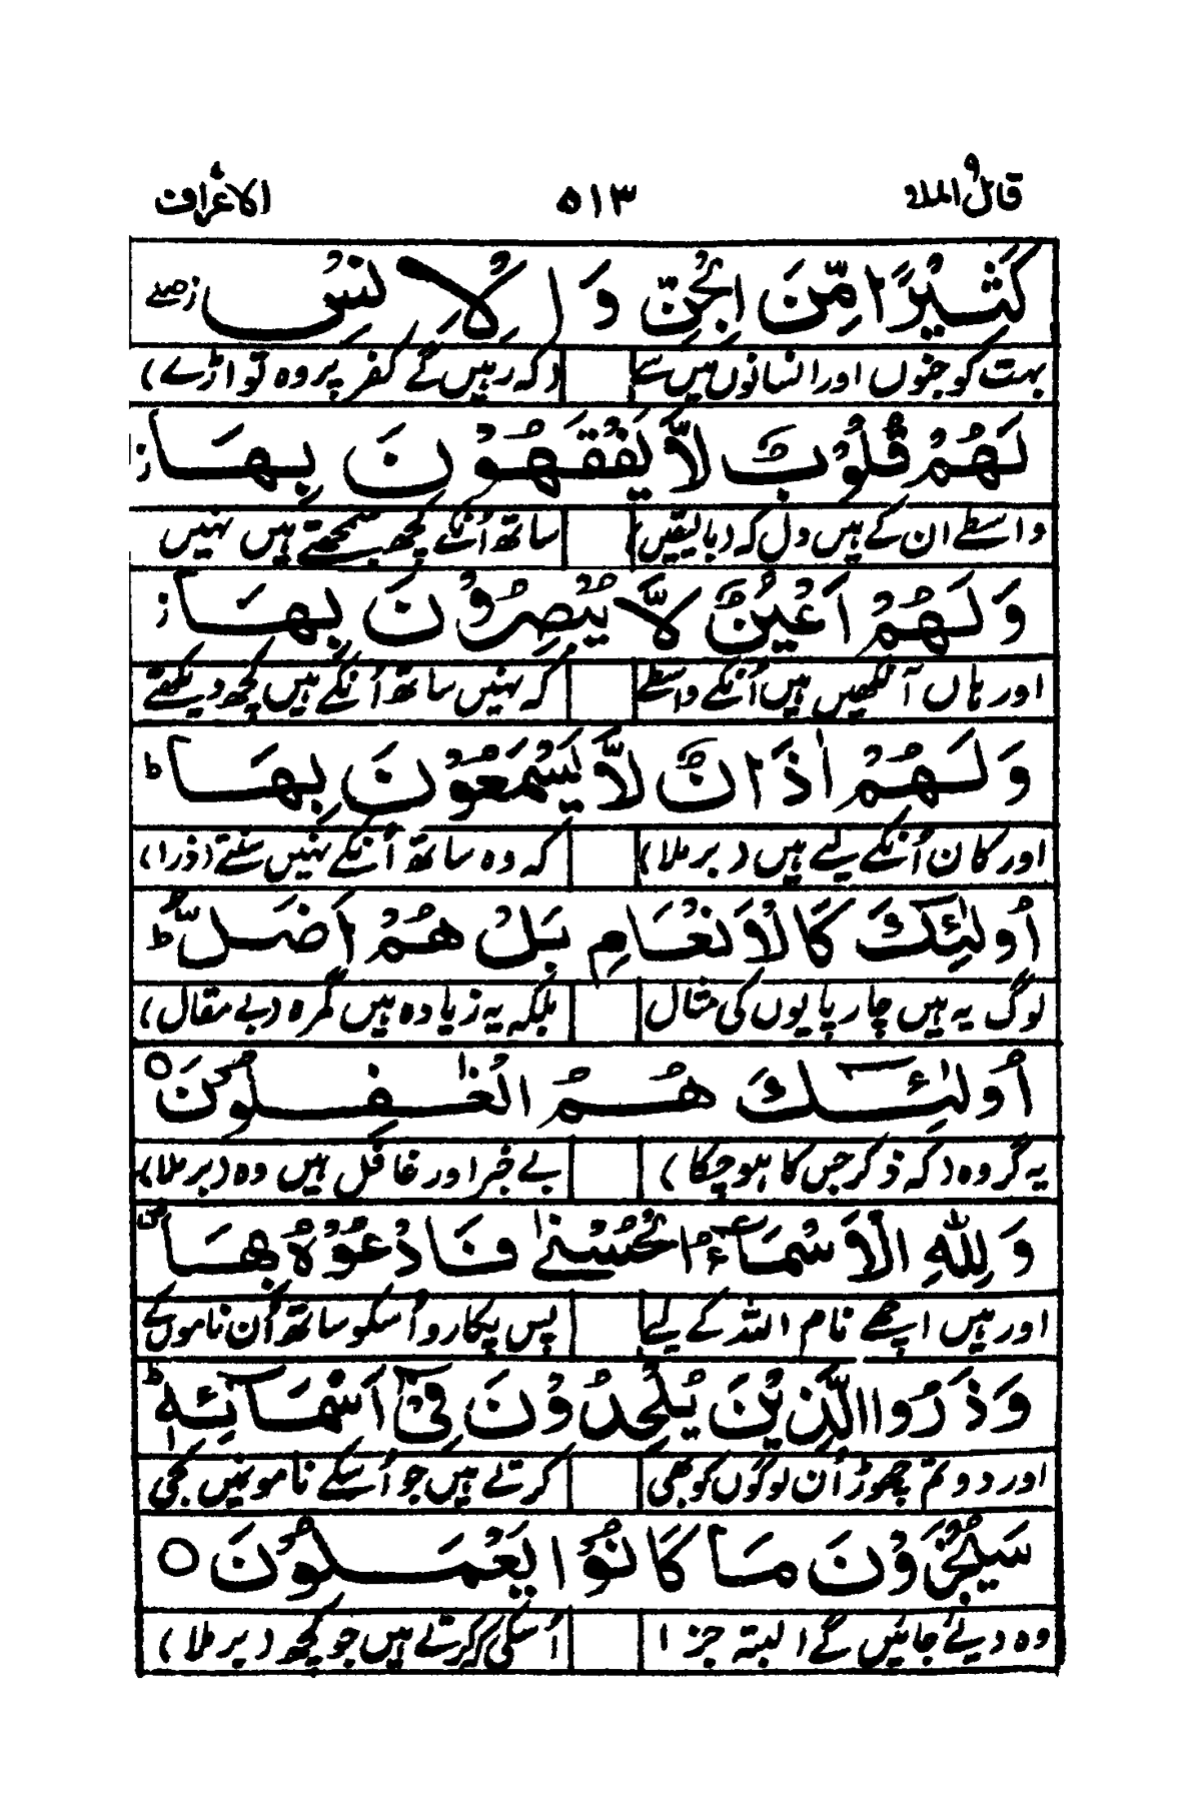 قال الملا ٥١٣ الاعراف
كَثِيْرًا مِّنَ الْجِنِّ وَالْاِنْسِ
بہت کو جنوں اور انسانوں میں سے (کہ رہیں گے کفر پر وہ تو اڑے)
لَهُمْ قُلُوْبٌ لَّا يَفْقَهُوْنَ بِهَا ز
واسطے ان کے ہیں دل کہ (بالیقیں) ساتھ اُنکے کچھ سمجھتے ہیں نہیں
وَلَهُمْ اَعْيُنٌ لَّا يُبْصِرُوْنَ بِهَا ز
اور ہاں آنکھیں ہیں اُنکے واسطے کہ نہیں ساتھ اُنکے ہیں کچھ دیکھتے
وَلَهُمْ اٰذَانٌ لَّا يَسْمَعُوْنَ بِهَا ط
اور کان اُنکے لیے ہیں (برملا) کہ وہ ساتھ اُنکے نہیں سنتے (ذرا)
اُولٰٓئِكَ كَالْاَنْعَامِ بَلْ هُمْ اَضَلُّ ط
لوگ یہ ہیں چارپایوں کی مثال بلکہ یہ زیادہ ہیں گمرہ (بے مقال)
اُولٰٓئِكَ هُمُ الْغٰفِلُوْنَ ○
یہ گروہ (کہ ذکر جس کا ہو چکا) بے خبر اور غافل ہیں وہ (برملا)
وَلِلّٰهِ الْاَسْمَآءُ الْحُسْنٰى فَادْعُوْهُ بِهَا ص
اور ہیں اچھے نام اللہ کے لیے پس پکارو اُسکو ساتھ اُن ناموں کے
وَذَرُوا الَّذِيْنَ يُلْحِدُوْنَ فِيْٓ اَسْمَآئِهٖ ط
اور دو تم چھوڑ اُن لوگوں کو بھی کرتے ہیں جو اُسکے ناموں میں کجی
سَيُجْزَوْنَ مَا كَانُوْا يَعْمَلُوْنَ ○
وہ دیے جائیں گے البتہ جزا اُسکی کہ کرتے ہیں جو کچھ (برملا)